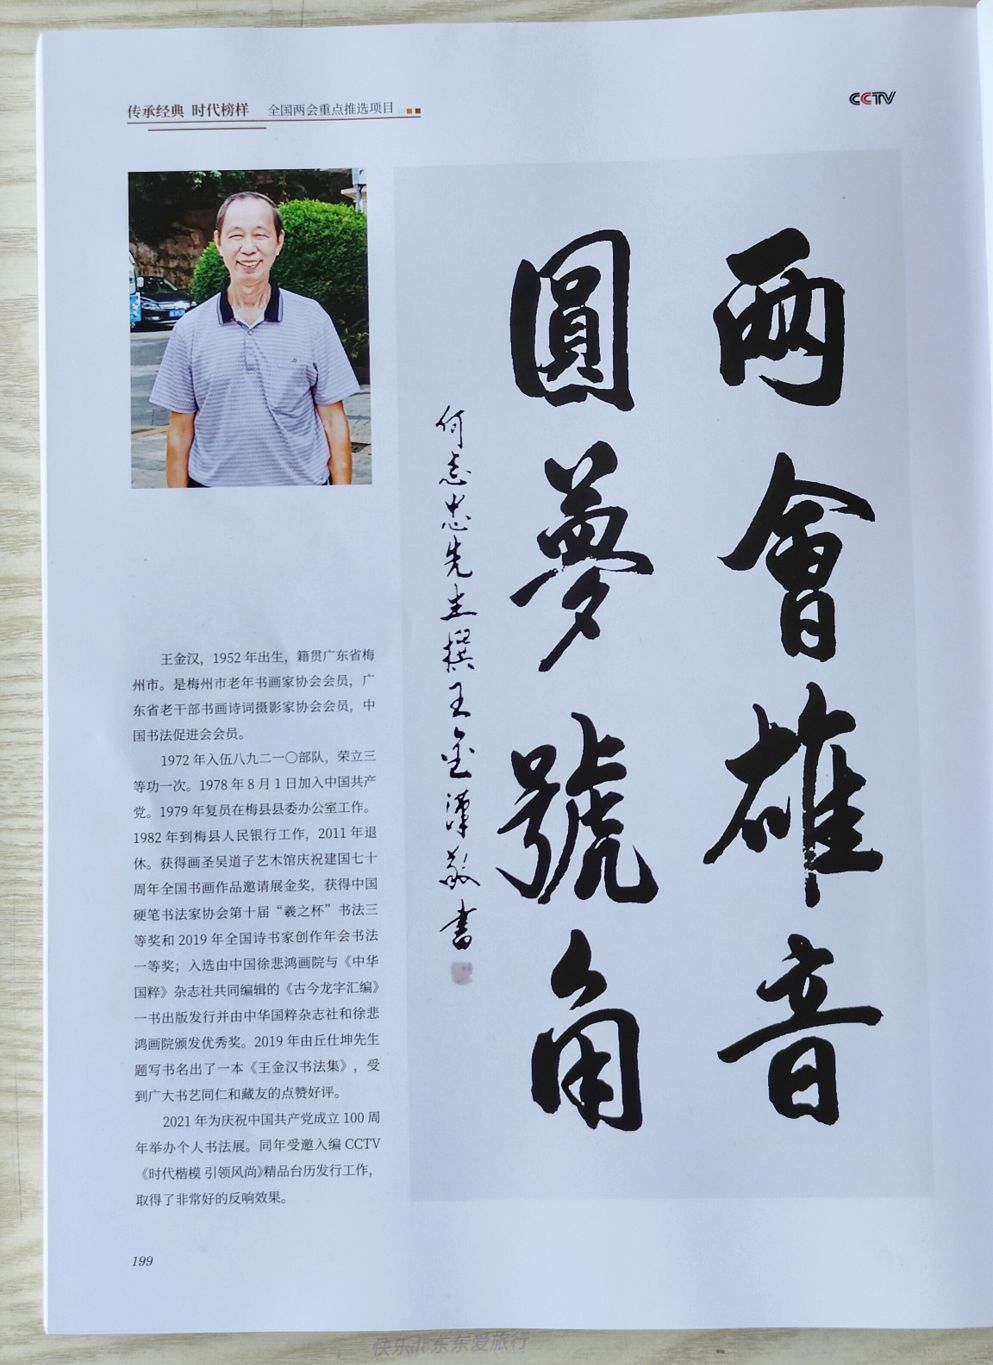 传承经典 时代榜样 全国两会重点推选项目
CCTV
兩會雄音
圓夢號角
何志忠先生撰王金漢敬書
王金汉，1952 年出生，籍贯广东省梅
州市。是梅州市老年书画家协会会员，广
东省老干部书画诗词摄影家协会会员，中
国书法促进会会员。
1972 年入伍八九二一〇部队，荣立三
等功一次。1978 年 8 月 1 日加入中国共产
党。1979 年复员在梅县县委办公室工作。
1982 年到梅县人民银行工作，2011 年退
休。获得画圣吴道子艺术馆庆祝建国七十
周年全国书画作品邀请展金奖，获得中国
硬笔书法家协会第十届“羲之杯”书法三
等奖和 2019 年全国诗书家创作年会书法
一等奖；入选由中国徐悲鸿画院与《中华
国粹》杂志社共同编辑的《古今龙字汇编》
一书出版发行并由中华国粹杂志社和徐悲
鸿画院颁发优秀奖。2019 年由丘仕坤先生
题写书名出了一本《王金汉书法集》，受
到广大书艺同仁和藏友的点赞好评。
2021 年为庆祝中国共产党成立 100 周
年举办个人书法展。同年受邀入编 CCTV
《时代楷模 引领风尚》精品台历发行工作，
取得了非常好的反响效果。
199
东东爱旅行